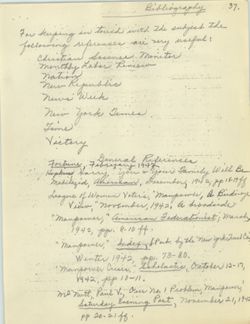 Bibliography 37.
For keeping in touch with the subject the
following references are very useful:
Christian Science Monitor
Monthly Labor Review
Nation
New Republic
News Week
New York Times
Time
Victory
General References
Fortune, February 1942
Hopkins, Harry, "You & Your Family Will Be
Mobilized", American, December, 1942, pp.
League of Women Voters, "Manpower, A Birdseye
View," November, 1942, A broadside
"Manpower," American Federationist; March,
1942, pp. 8-10 ff.
"Manpower," Pub. by the New York
Winter 1942, pp. 73-80.
"Manpower Crisis," Scholastic, October 12-17,
1942, pp. 10-11.
McNutt, Paul V., Our No. 1 Problem, Manpower,
Saturday Evening Post, November 21, 1942
pp 20-21 ff.